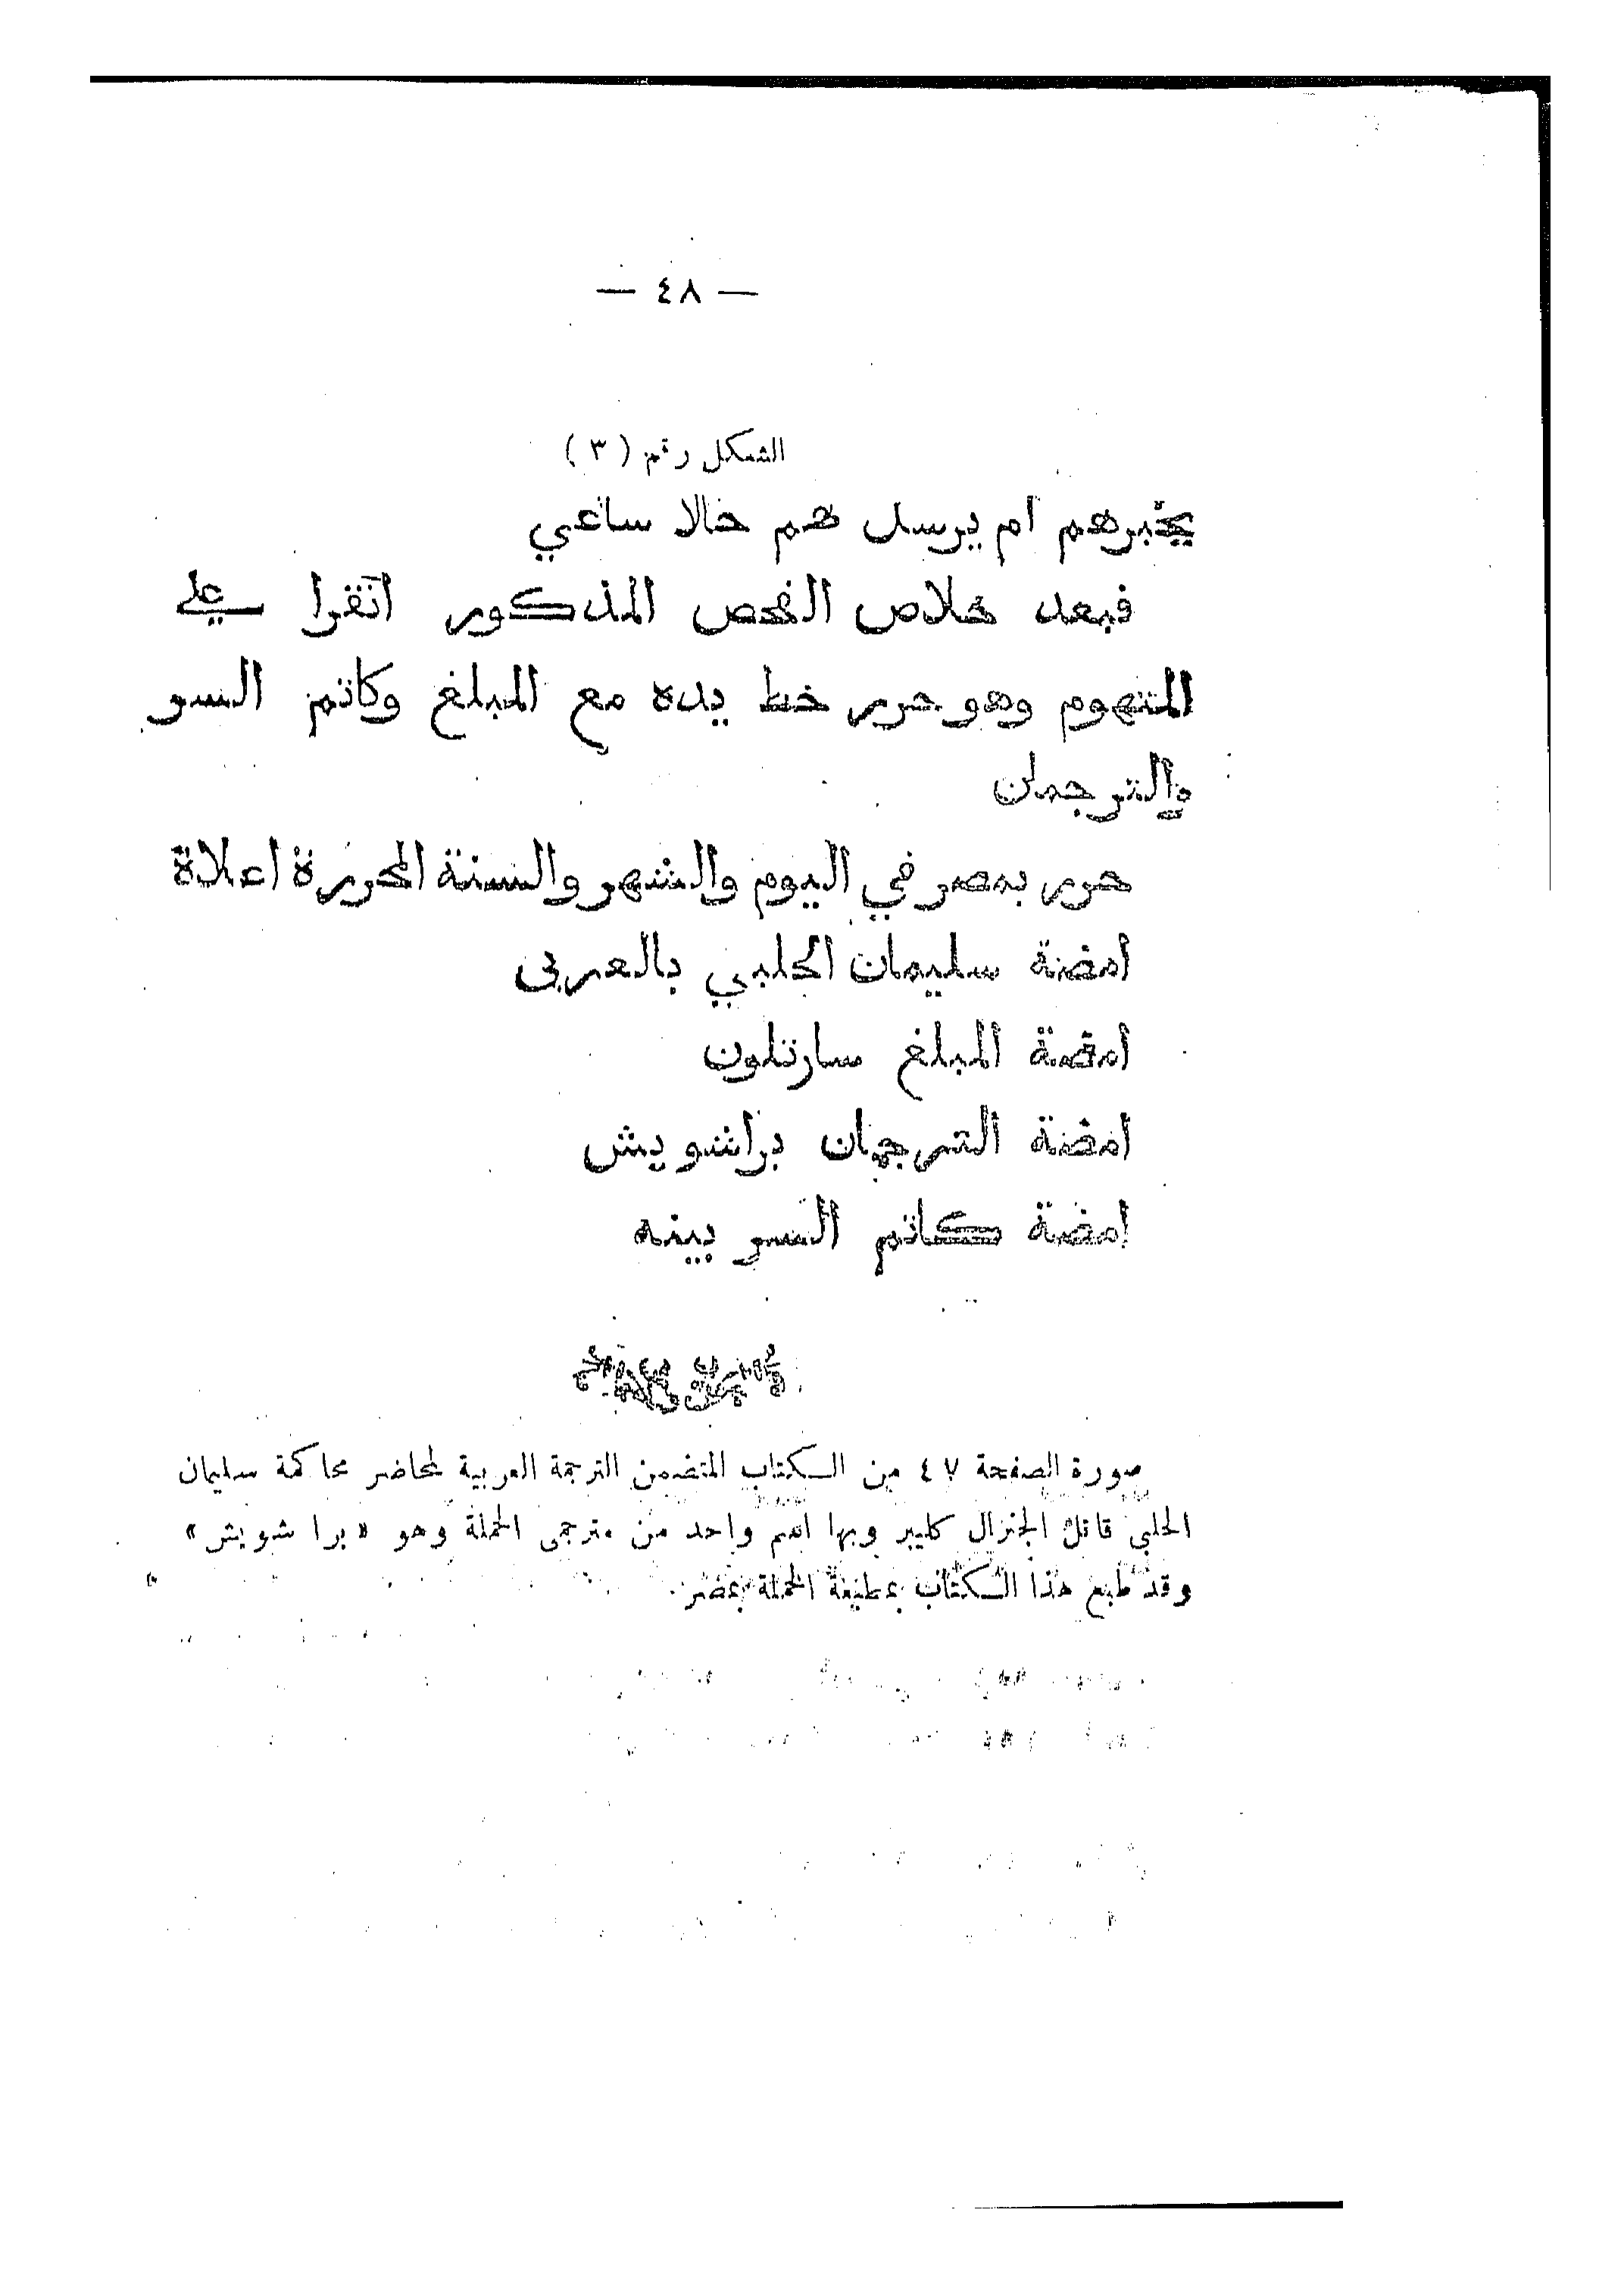 — ٤٨ —
الشكل رقم ( ٣ )
يخبرهم ام يرسل هم حالا ساعي
فبعد خلاص الفحص المذكور انقرا علي
المتهوم وهو حرر خط يده مع المبلغ وكاتم السر
والترجمان
حرر بمصر في اليوم والشهر والسنة المحررة اعلاة
امضة سليمان الحلبي بالعربي
امضة المبلغ سارتلون
امضة الترجمان براشويش
امضة كاتم السر بينه
صورة الصفحة ٤٧ من الكتاب المتضمن الترجمة العربية لمحاضر محاكمة سليمان
الحلبى قاتل الجنرال كليبر وبها اسم واحد من مترجمى الحملة وهو « برا شويش »
وقد طبع هذا الكتاب بمطبعة الحملة بمصر.